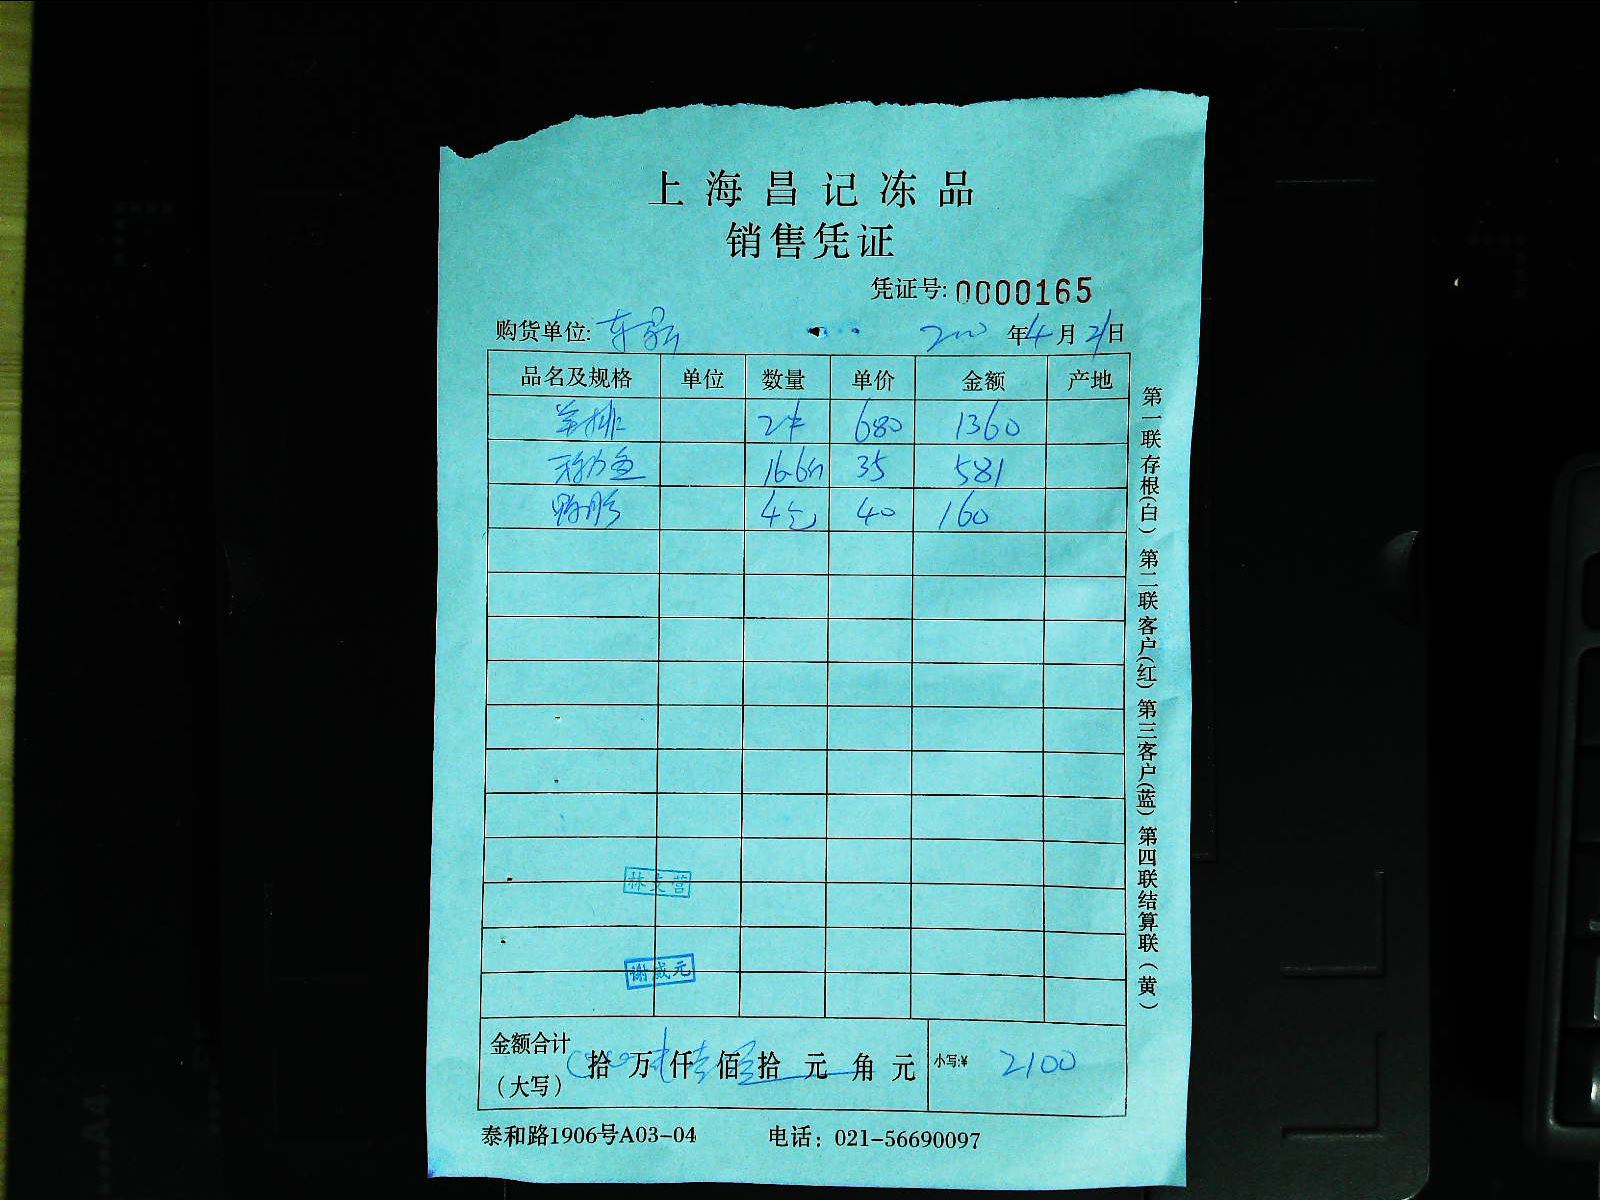 上海昌记冻品
销售凭证
凭证号: 0000165
购货单位: 年4月21日
品名及规格 单位 数量 单价 金额 产地
羊排 2件 680 1360
16.6斤 35 581
鸭胗 4包 40 160
林文营
谢威元
金额合计(大写) 拾 万 仟 佰 拾 元 角 元 小写:¥ 2100
泰和路1906号A03-04 电话：021-56690097
第一联存根(白) 第二联客户(红) 第三客户(蓝) 第四联结算联(黄)